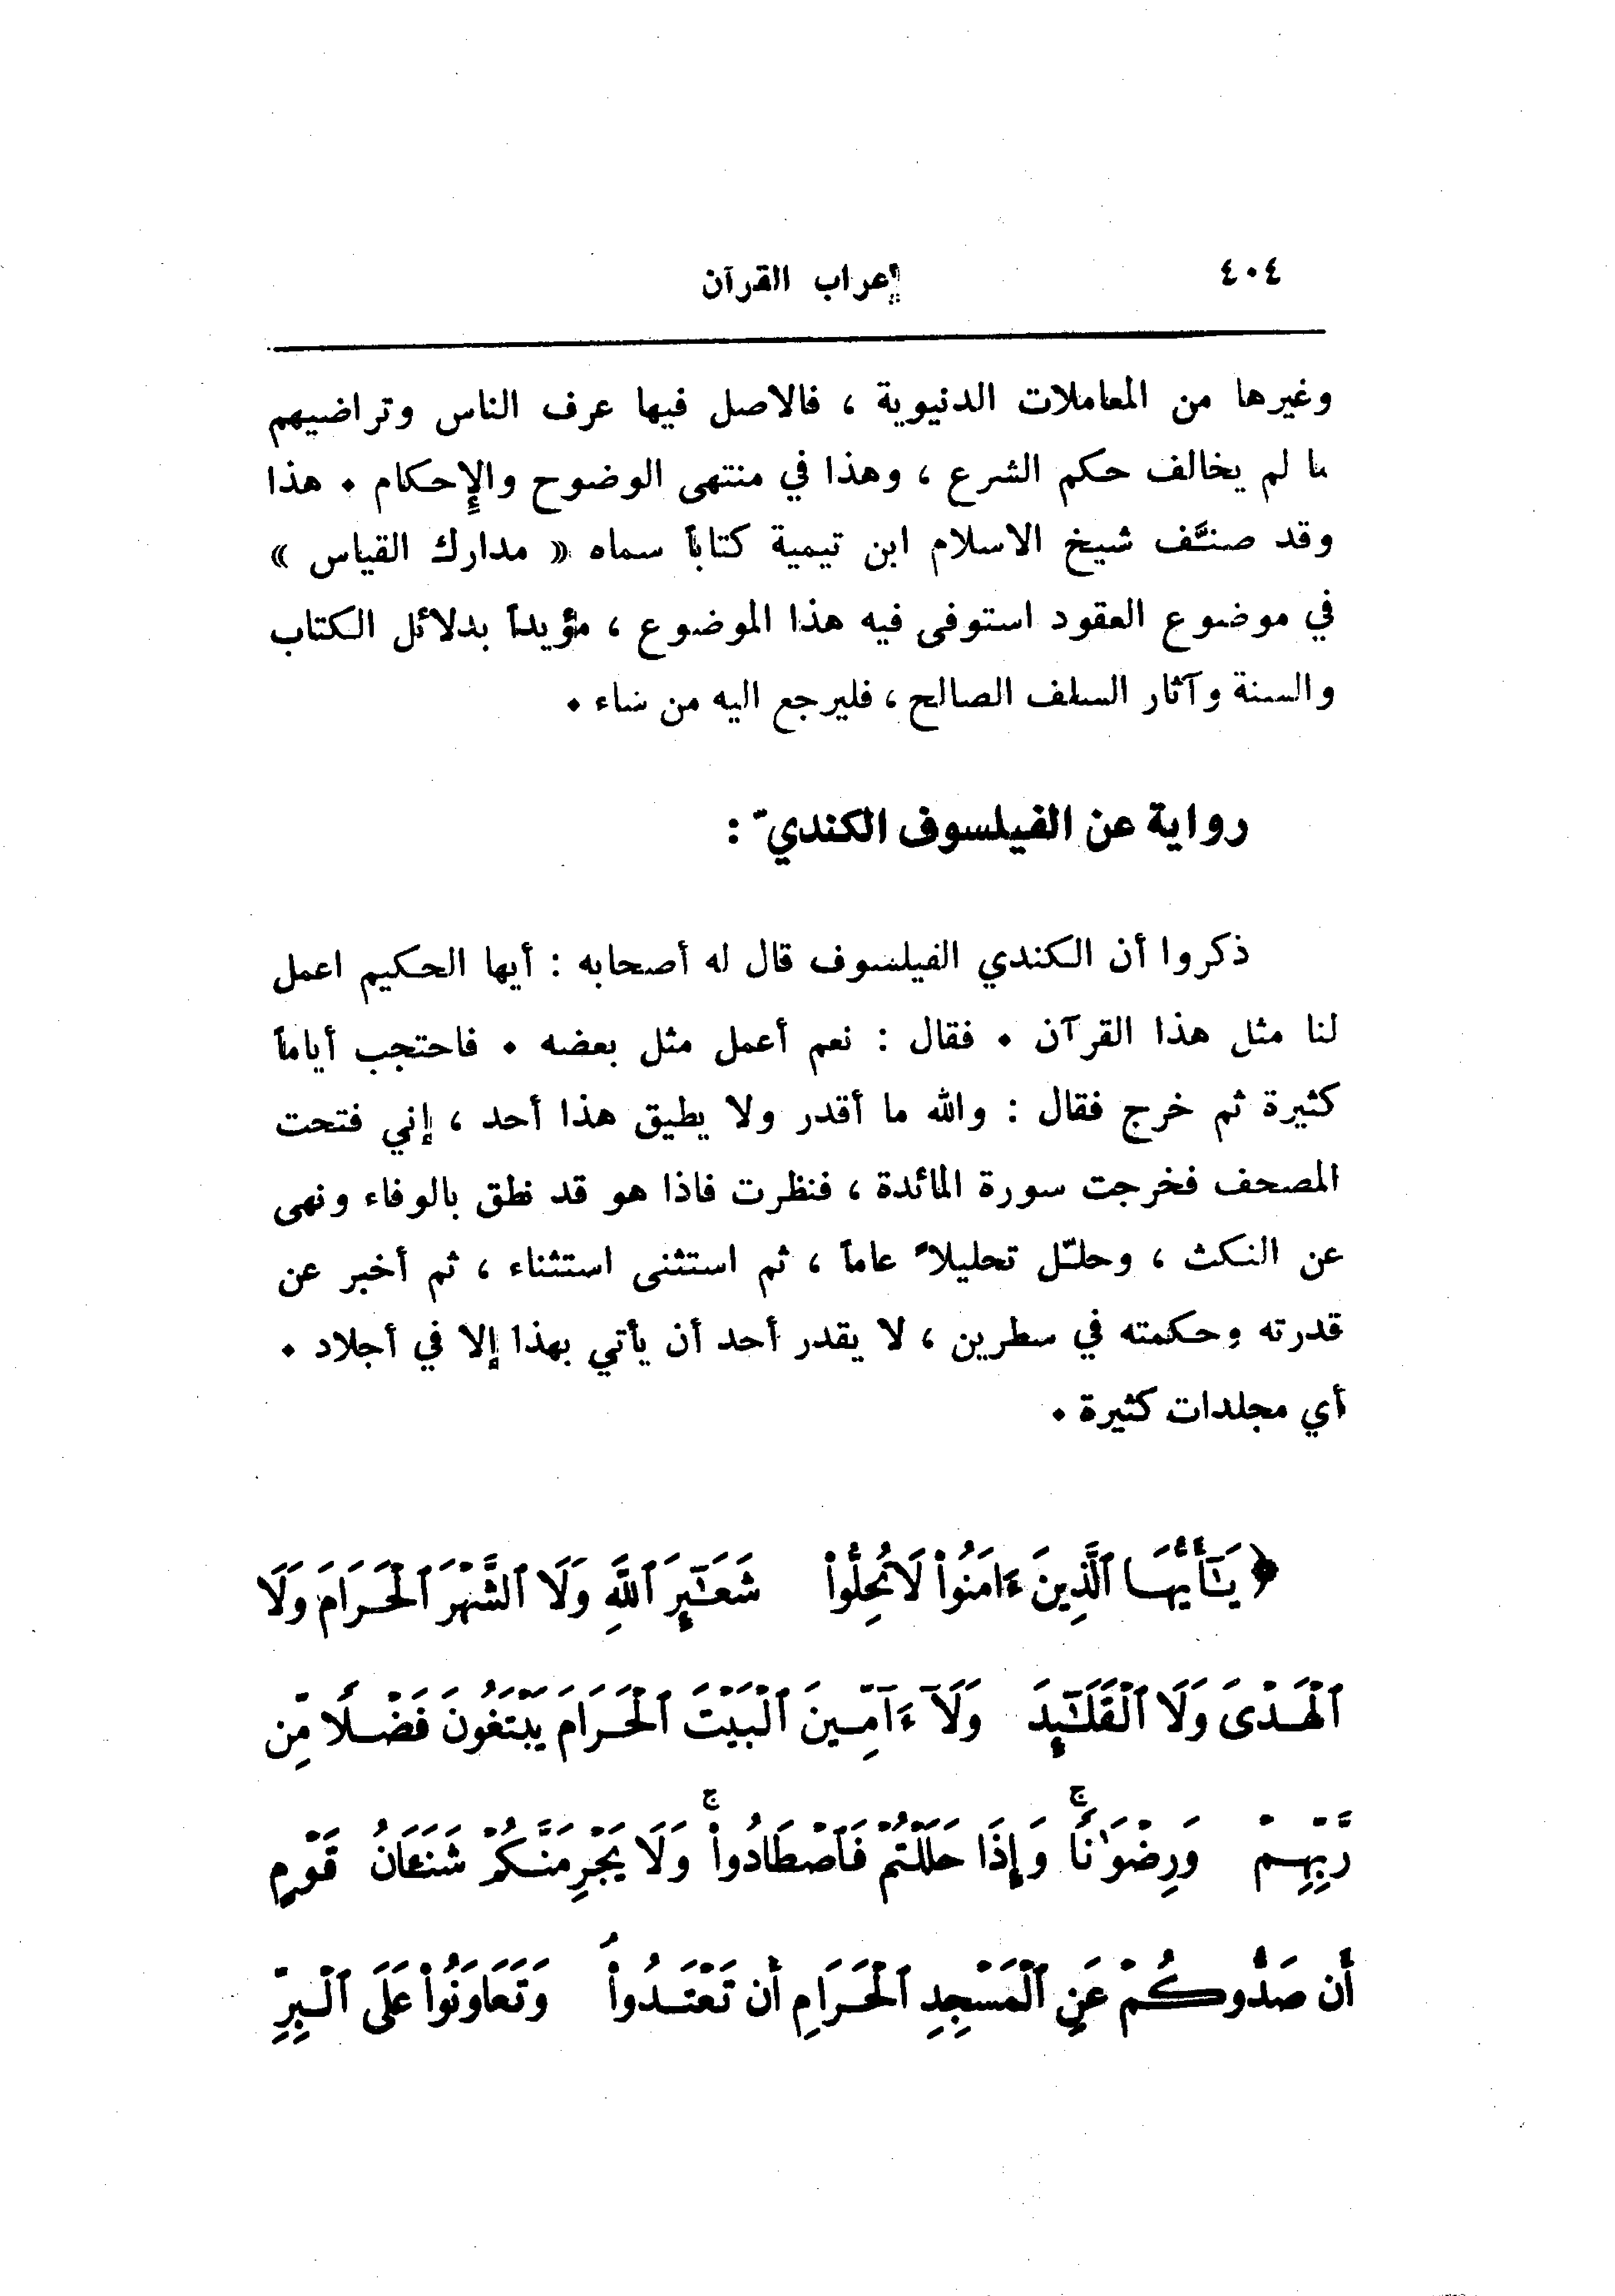 ٤٠٤
إعراب القرآن
وغيرها من المعاملات الدنيوية ، فالاصل فيها عرف الناس وتراضيهم
ما لم يخالف حكم الشرع ، وهذا في منتهى الوضوح والإحكام . هذا
وقد صنّف شيخ الاسلام ابن تيمية كتاباً سماه « مدارك القياس »
في موضوع العقود استوفى فيه هذا الموضوع ، مؤيداً بدلائل الكتاب
والسنة وآثار السلف الصالح ، فليرجع اليه من شاء .
رواية عن الفيلسوف الكنديّ :
ذكروا أن الكندي الفيلسوف قال له أصحابه : أيها الحكيم اعمل
لنا مثل هذا القرآن . فقال : نعم أعمل مثل بعضه . فاحتجب أياماً
كثيرة ثم خرج فقال : والله ما أقدر ولا يطيق هذا أحد ، إني فتحت
المصحف فخرجت سورة المائدة ، فنظرت فاذا هو قد نطق بالوفاء ونهى
عن النكث ، وحلّل تحليلاً عاماً ، ثم استثنى استثناء ، ثم أخبر عن
قدرته وحكمته في سطرين ، لا يقدر أحد أن يأتي بهذا إلا في أجلاد .
أي مجلدات كثيرة .
﴿ يَٰٓأَيُّهَا ٱلَّذِينَ ءَامَنُوا۟ لَا تُحِلُّوا۟ شَعَٰٓئِرَ ٱللَّهِ وَلَا ٱلشَّهْرَ ٱلْحَرَامَ وَلَا
ٱلْهَدْىَ وَلَا ٱلْقَلَٰٓئِدَ وَلَآ ءَآمِّينَ ٱلْبَيْتَ ٱلْحَرَامَ يَبْتَغُونَ فَضْلًا مِّن
رَّبِّهِمْ وَرِضْوَٰنًا ۚ وَإِذَا حَلَلْتُمْ فَٱصْطَادُوا۟ ۚ وَلَا يَجْرِمَنَّكُمْ شَنَـَٔانُ قَوْمٍ
أَن صَدُّوكُمْ عَنِ ٱلْمَسْجِدِ ٱلْحَرَامِ أَن تَعْتَدُوا۟ ۘ وَتَعَاوَنُوا۟ عَلَى ٱلْبِرِّ